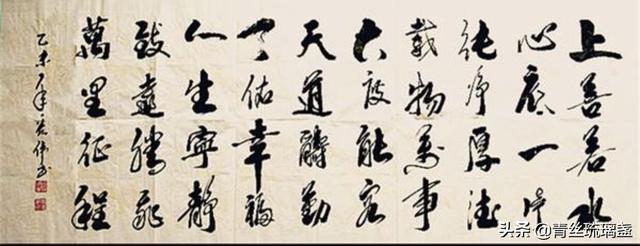 上善若水
心底一片
純净厚德
載物萬事
大度能容
天道酬勤
佑幸福
人生寧靜
致遠騰飛
萬里征程
乙未年偉书
头条 @青丝琉璃盏